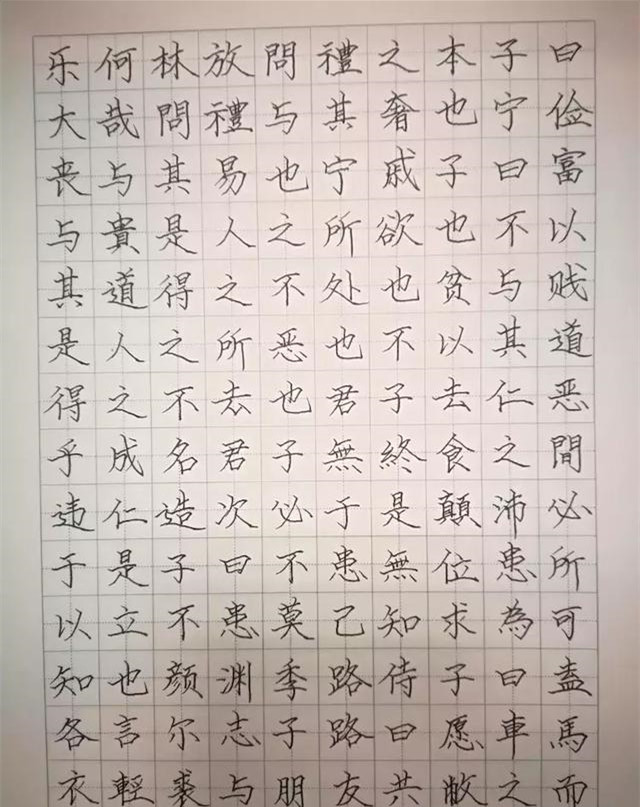 乐何林放問禮之本子曰
大哉問禮与其奢也宁俭
丧与其易也宁戚子曰富
与貴是人之所欲也不以
其道得之不处也贫与贱
是人之所恶也不以其道
得之不去也君子去仁恶
乎成名君子無終食之間
违仁造次必于是顛沛必
于是子曰不患無位患所
以立不患莫己知求為可
知也颜渊季路侍子曰盍
各言尔志子路曰愿車馬
衣輕裘与朋友共敝之而